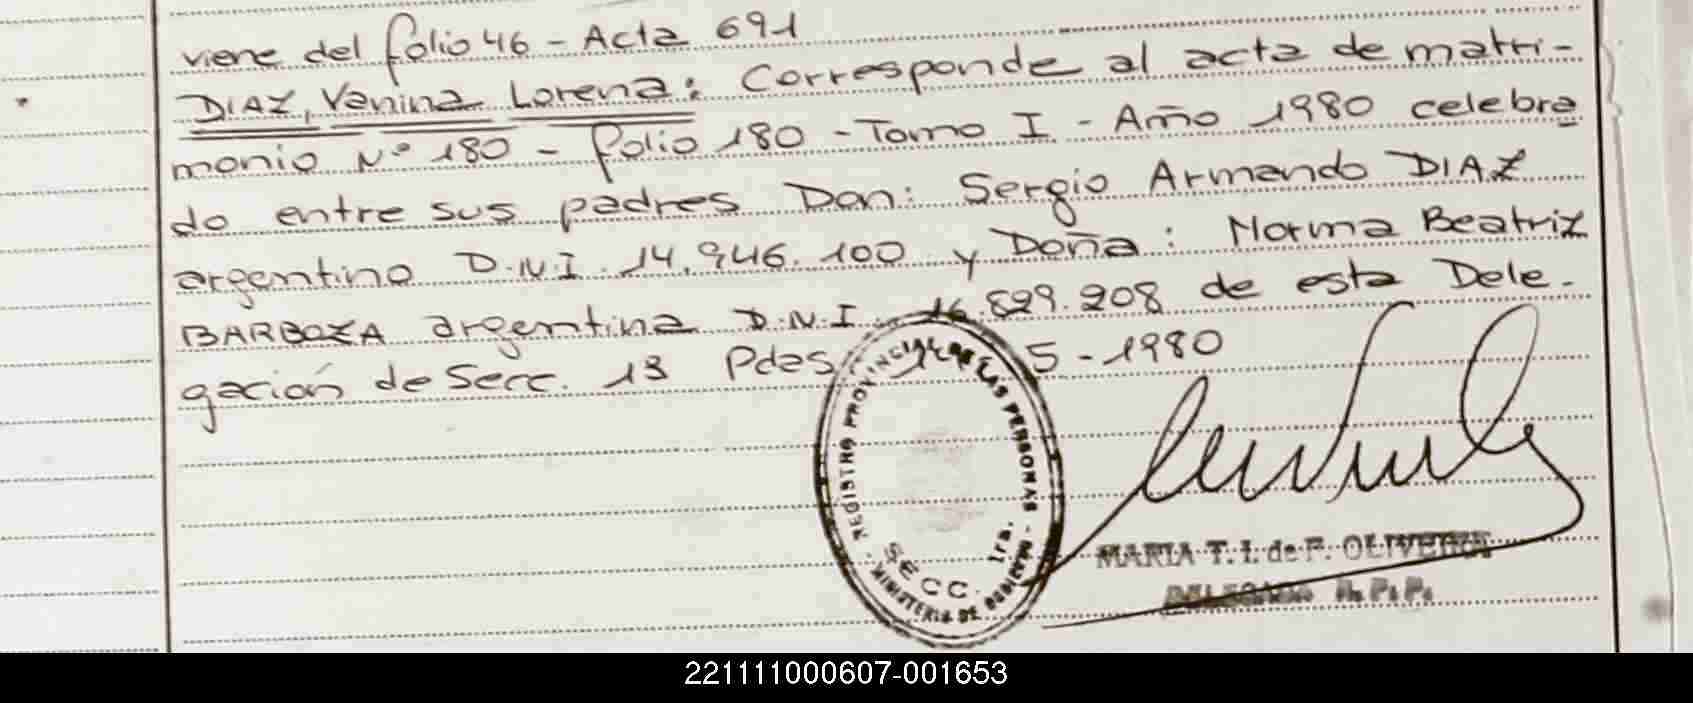 viene del folio 46 - Acta 691
DIAZ, Vanina Lorena: Corresponde al acta de matri-
monio Nº 180 - folio 180 - Tomo I - Año 1980 celebra
do entre sus padres Don: Sergio Armando DIAZ
argentino D.N.I. 14.946.100 y Doña: Norma Beatriz
BARBOZA argentina D.N.I. 16.829.208 de esta Dele-
gación de Secc. 13 Pdas 5-1980
REGISTRO PROVINCIAL DE LAS PERSONAS
MINISTERIO DE GOBIERNO
SECC. 1ra.
MARIA T. I. de F. OLIVEIRA
DELEGADA R. P. P.
221111000607-001653